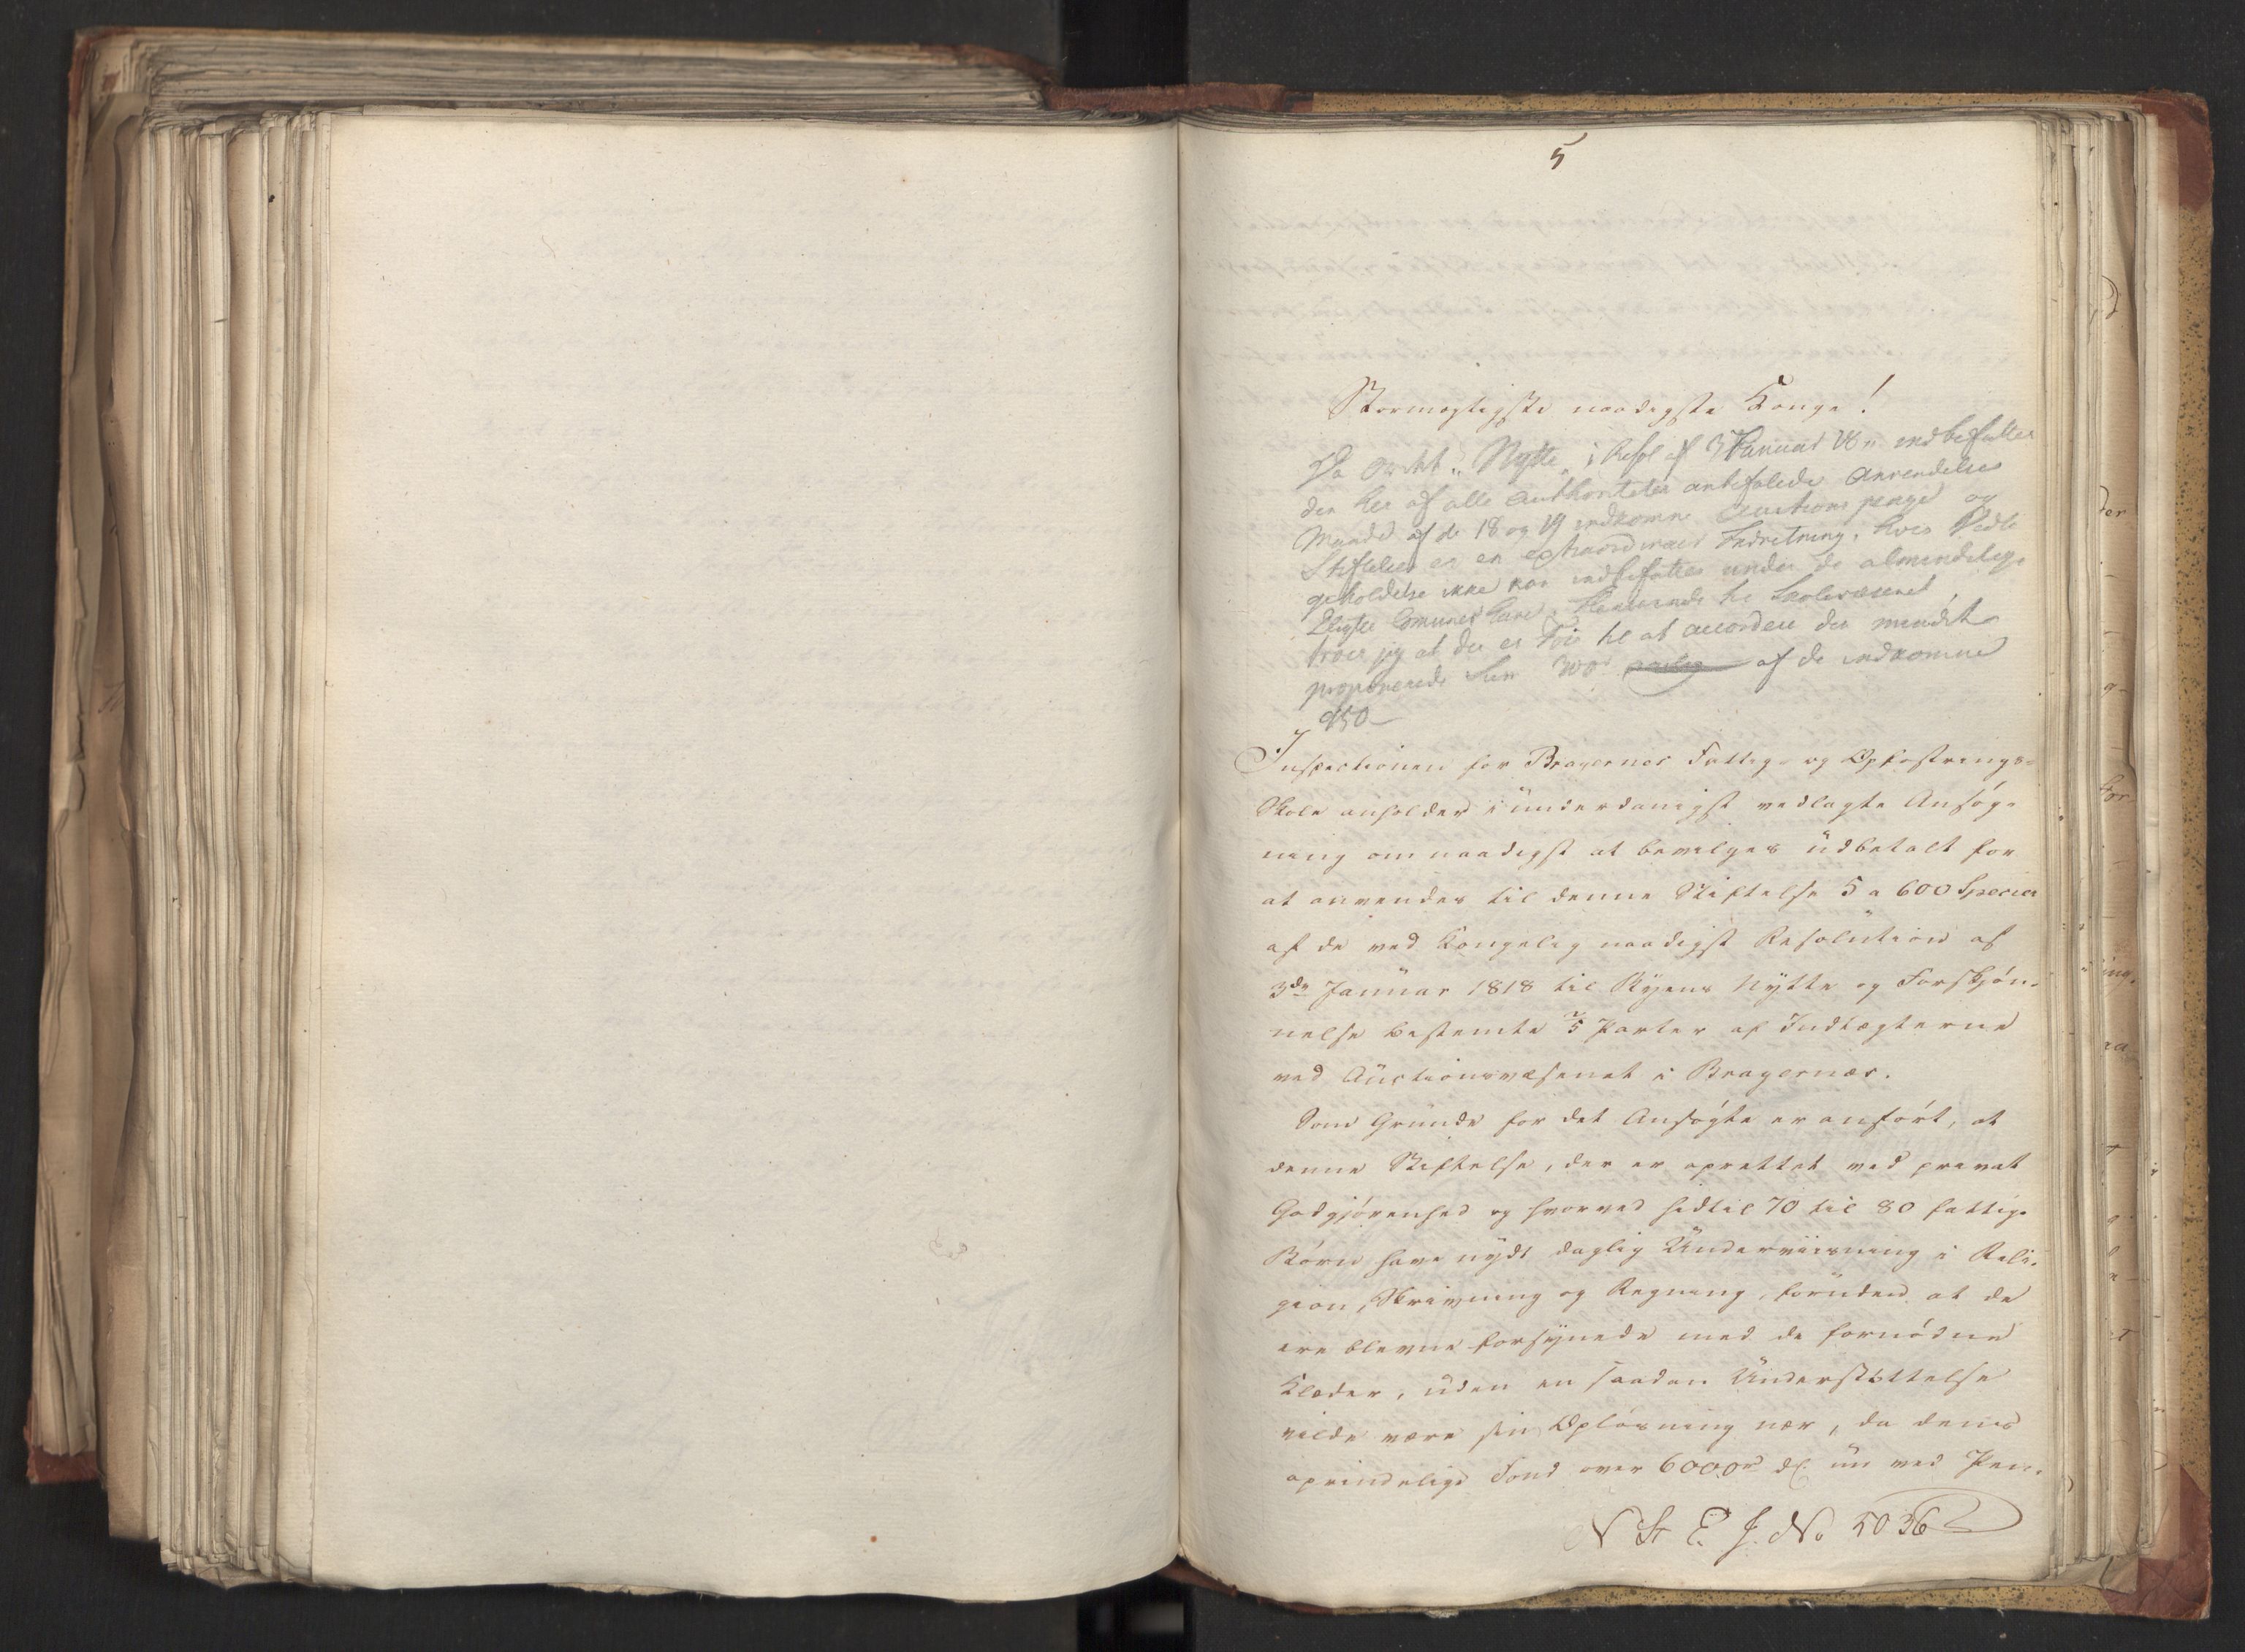 5
Stormægtigste naadigste Konge!
Da Ordet "Nytte" i Resol af 3 Januar 18 indbefatter
den her af alle Authoriteter anbefalede Anvendelses
Maade af de 18 og 19 indkomne Auctions penge og
Stiftelsen er en extraordinair Indretning, hvis Vedli
geholdelse ikke kan indbefattes under de almindelige
Pligter Communer have henseende til Skolevæsenet,
troer jeg at der er Föie til at accordere den mindste
proponerede Sum 500 af de indkomne
950
Inspectionen for Bragernes Fattig- og Opfostrings-
Skole anholder i underdanigst vedlagte Ansøg-
ning om naadigst at bevilges udbetalt for
at anvendes til denne Stiftelse 5 a 600 Species
af de ved Kongelig naadigst Resolution af
3die Januar 1818 til Byens Nytte og Forskjøn-
nelse bestemte 2/5 Parter af Indtægterne
ved Auctionsvæsenet i Bragernæs.
Som Grunde for det Ansøgte er anført, at
denne Stiftelse, der er oprettet ved privat
Godgjørenhed og hvorved hidtil 70 til 80 fattige
Børn have nydt daglig Underviisning i Reli-
gion, Skrivning og Regning, foruden at de
ere blevne forsynede med de fornødne
Klæder, uden en saadan Understøttelse
vilde være sin Opløsning nær, da dens
oprindelige Fond over 6000 rd dC. nu ved Pen-
N St E. J. No 5036